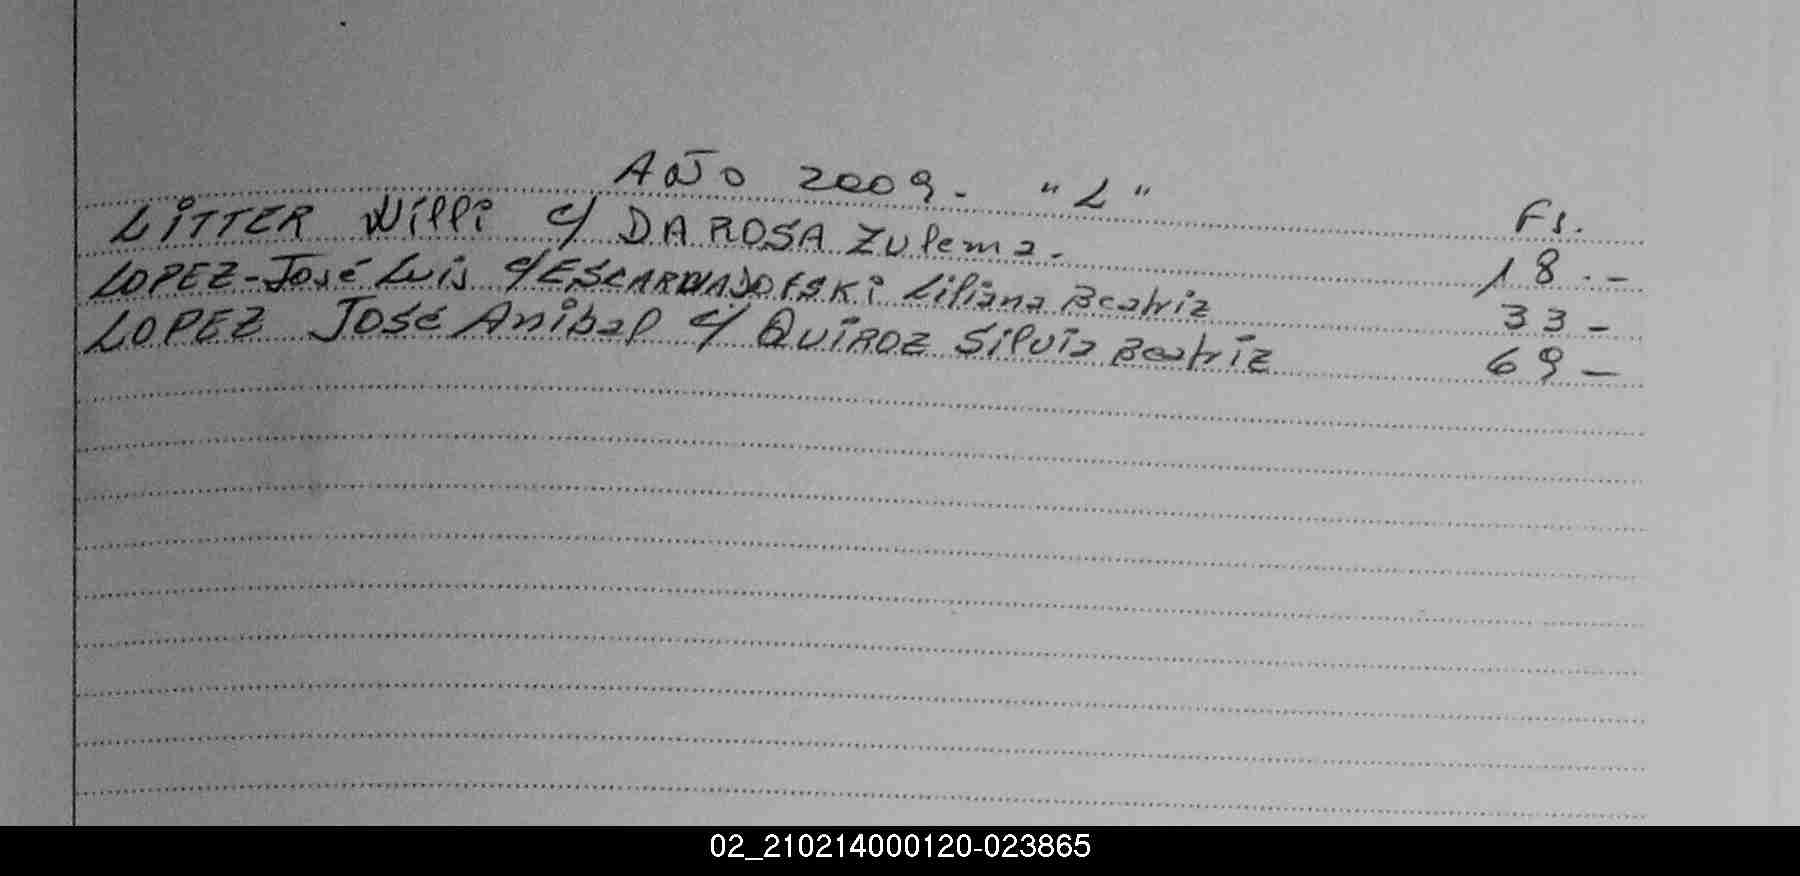 Año 2009. "L"
Fs.
LITTER Willi c/ DA ROSA Zulema. 18.-
LOPEZ-José Luis c/ Liliana Beatriz 33-
LOPEZ José Anibal c/ QUIROZ Silvia Beatriz 69-
02_210214000120-023865